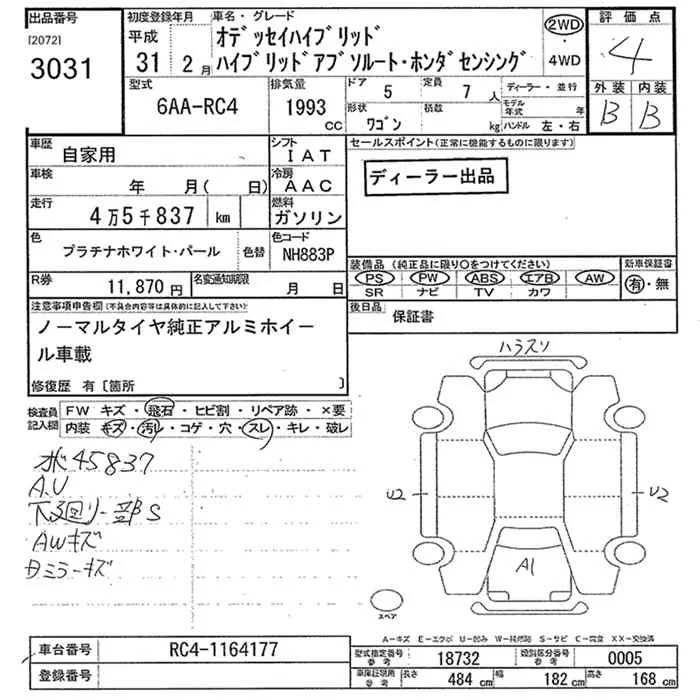 出品番号
[2072]
3031
初度登録年月
平成
31 2月
車名・グレード
オデッセイハイブリッド
ハイブリッドアブソルート・ホンダセンシング
2WD
・
4WD
評価点
4
外装 内装
B B
型式
6AA-RC4
排気量
1993
CC
ドア 5
定員 7 人
形状 ワゴン
積数 kg
ディーラー・並行
モデル年式 年
ハンドル 左・右
車歴 自家用
シフト IAT
車検 年 月( 日)
冷房 AAC
走行 4万5千837 km
燃料 ガソリン
色 プラチナホワイト・パール 色替
色コード NH883P
R券 11,870円
名変通知期限 月 日
セールスポイント(正常に機能するものに限ります)
ディーラー出品
装備品 (純正品に限り○をつけてください)
PS PW ABS エアB AW
SR ナビ TV カワ
新車保証書
有・無
後日品 保証書
注意事項申告欄(不具合内容等は具体的に記入して下さい)
ノーマルタイヤ純正アルミホイー
ル車載
修復歴 有〔箇所 〕
検査員記入欄
FW キズ・飛石・ヒビ割・リペア跡・×要
内装 キズ・汚レ・コゲ・穴・スレ・キレ・破レ
ホ"45837
A.U
下廻リ一部S
AWキズ
Dミラーキズ
ハラスリ
U2
U2
A1
スペア
A-キズ E-エクボ U-凹み W-補修跡 S-サビ C-腐食 XX-交換済
車台番号 RC4-1164177
登録番号
型式指定番号 参考 18732
類別区分番号 参考 0005
車庫証明用 参考
長さ 484 cm 幅 182 cm 高さ 168 cm